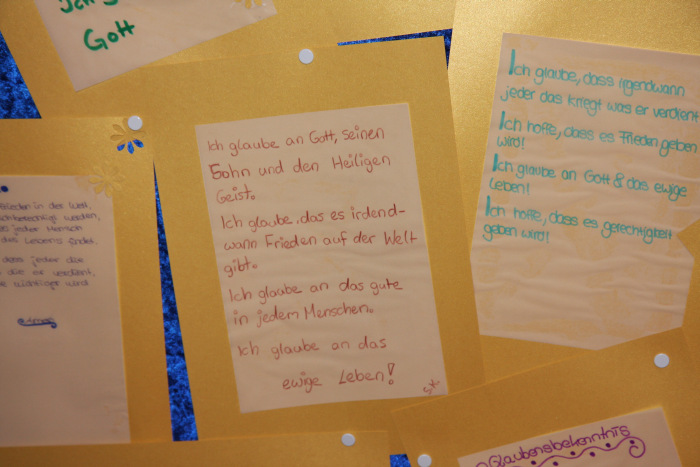 Gott
Ich glaube an Gott, seinen
Sohn und den Heiligen
Geist.
Ich glaube, das es irdend-
wann Frieden auf der Welt
gibt.
Ich glaube an das gute
in jedem Menschen.
Ich glaube an das
ewige Leben!
Ich glaube, dass irgendwann
jeder das kriegt was er verdient
Ich hoffe, dass es Frieden geben
wird!
Ich glaube an Gott & das ewige
Leben!
Ich hoffe, dass es gerechtigkeit
geben wird!
Frieden in der Welt,
werden,
jeder Mensch
des Lebens findet.
dass jeder die
die er verdient,
wichtiger wird
Amen
Glaubensbekenntnis